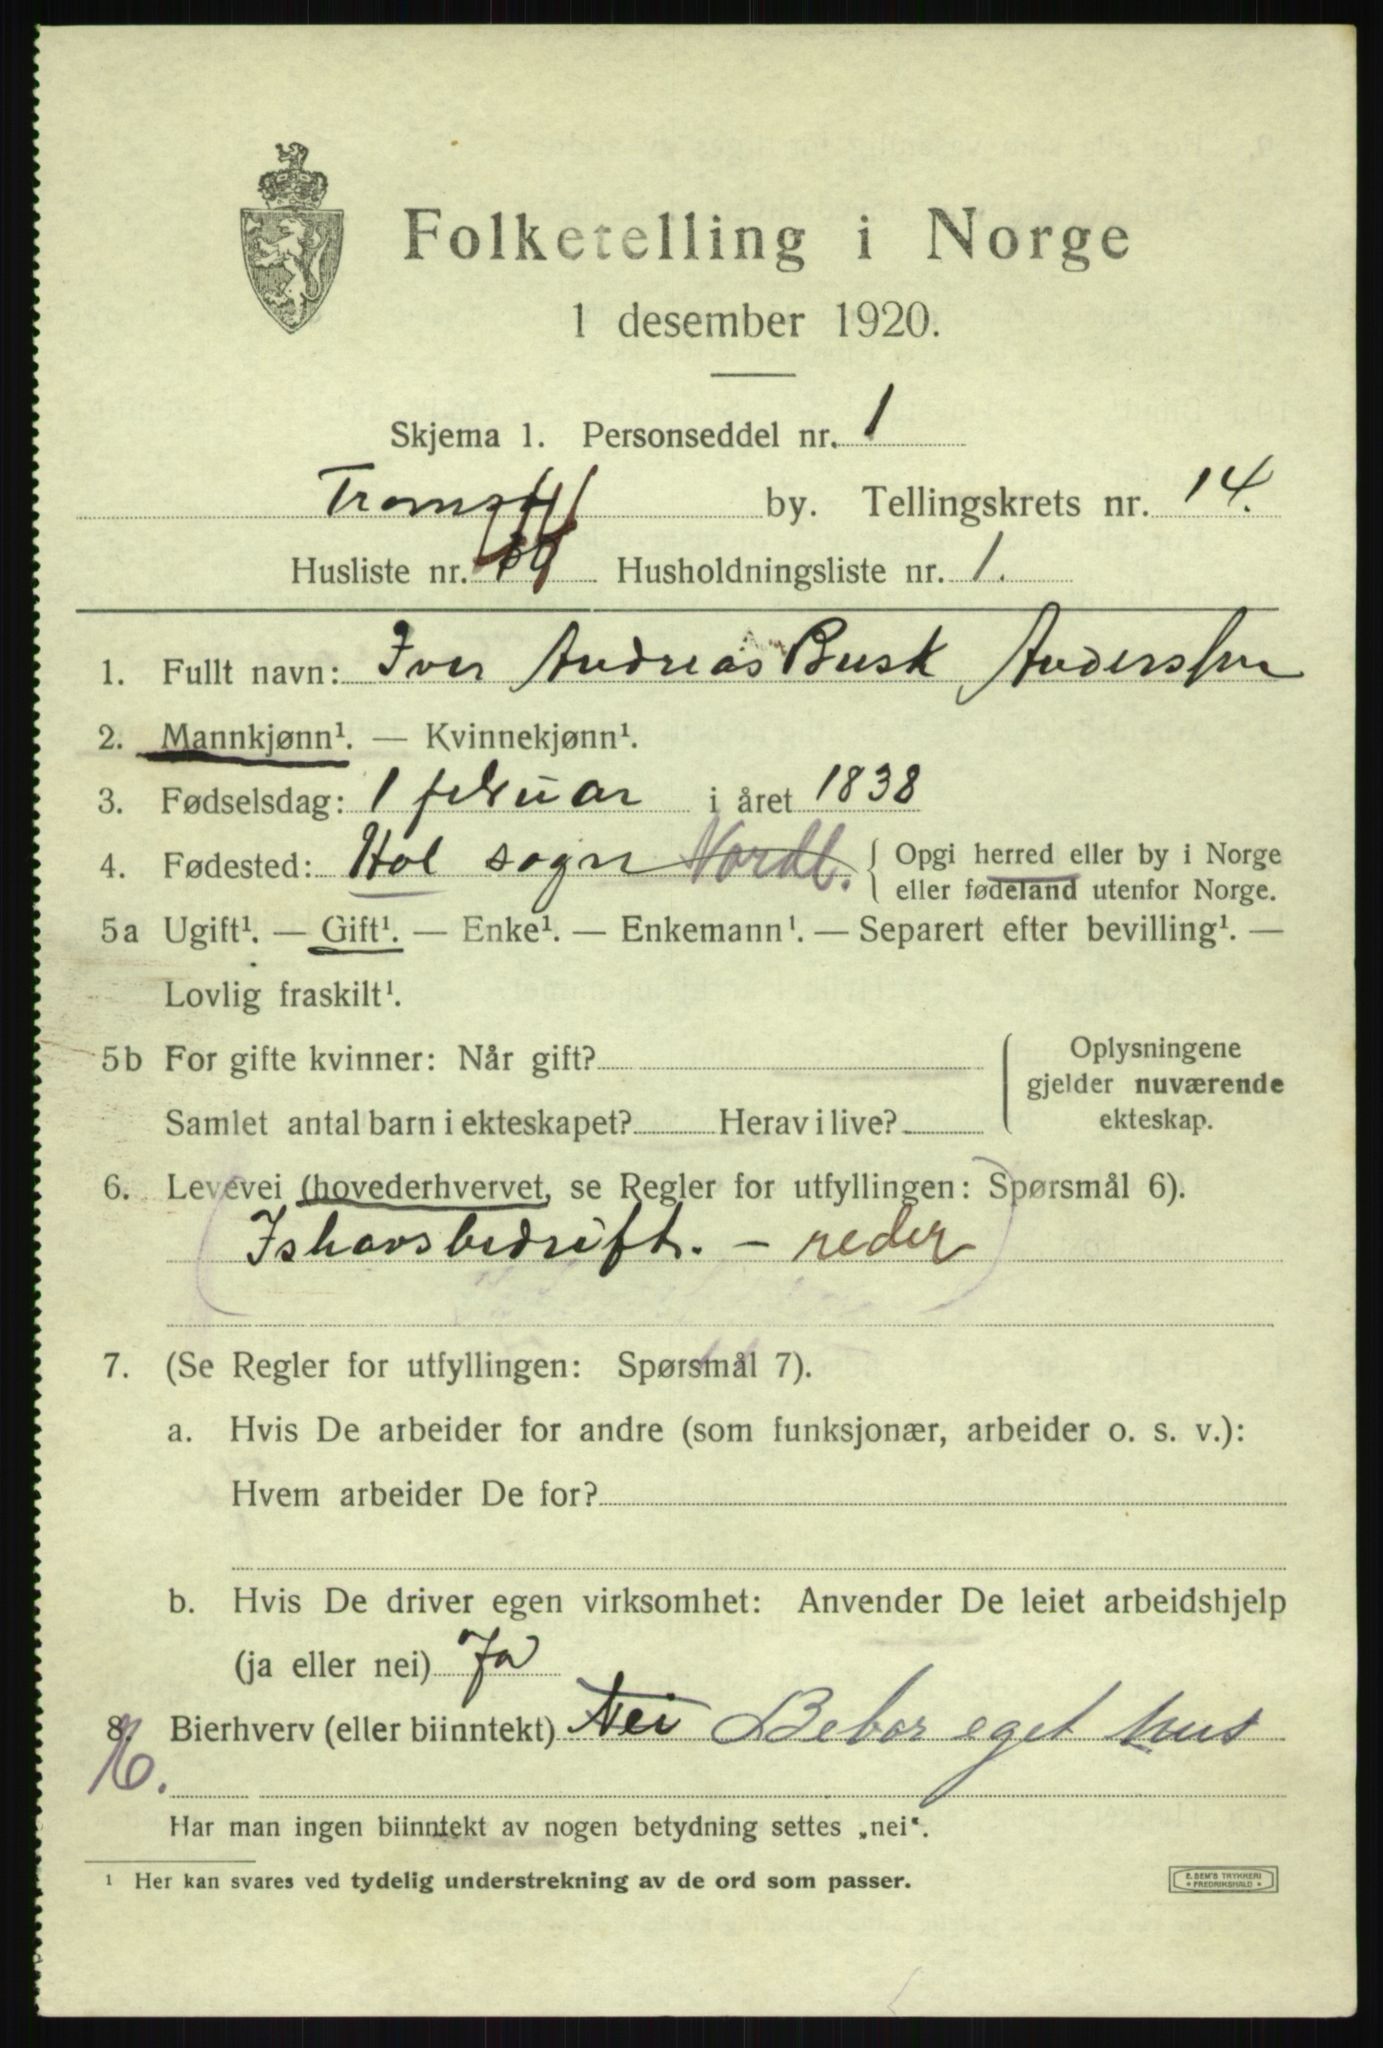 Folketelling i Norge
1 desember 1920.
Skjema 1. Personseddel nr. 1
Tromsø by. Tellingskrets nr. 14.
Husliste nr. Husholdningsliste nr. 1.
1. Fullt navn: Iver Andreas Busk Anderssen
2. Mannkjønn¹. — Kvinnekjønn¹.
3. Fødselsdag: 1 februar i året 1838
4. Fødested: Hol sogn Nordl. { Opgi herred eller by i Norge
eller fødeland utenfor Norge.
5a Ugift¹. — Gift¹. — Enke¹. — Enkemann¹. — Separert efter bevilling¹. —
Lovlig fraskilt¹.
5b For gifte kvinner: Når gift?
Samlet antal barn i ekteskapet? Herav i live?
Oplysningene
gjelder nuværende
ekteskap.
6. Levevei (hovederhvervet, se Regler for utfyllingen: Spørsmål 6).
Ishavsbedrift. – reder
7. (Se Regler for utfyllingen: Spørsmål 7).
a. Hvis De arbeider for andre (som funksjonær, arbeider o. s. v.):
Hvem arbeider De for?
b. Hvis De driver egen virksomhet: Anvender De leiet arbeidshjelp
(ja eller nei) Ja
8. Bierhverv (eller biinntekt) Nei Bebor eget hus
Har man ingen biinntekt av nogen betydning settes „nei“.
¹ Her kan svares ved tydelig understrekning av de ord som passer.
E. SEM'S TRYKKERI
* FREDRIKSHALD *